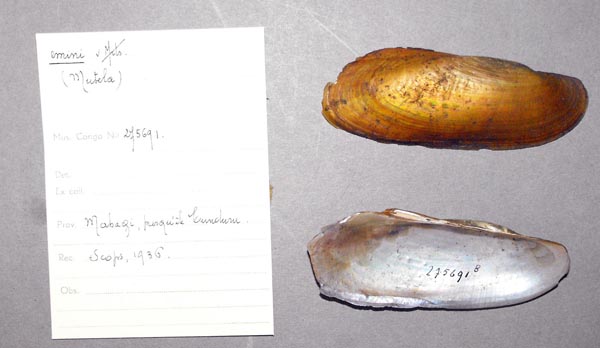 emini v. Mts.
(Mutela)
Mus. Congo No 275691.
Det.
Ex coll.
Prov. Mabagi, presqu'île
Rec. Scops, 1936.
Obs.
275691 B